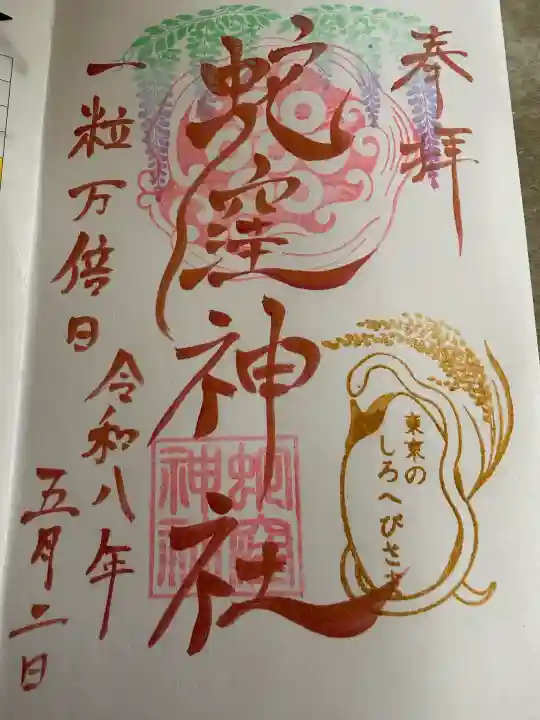 奉拝
東京の
しろへびさま
蛇窪神社
蛇窪
神社
一粒万倍日
令和八年
五月二日